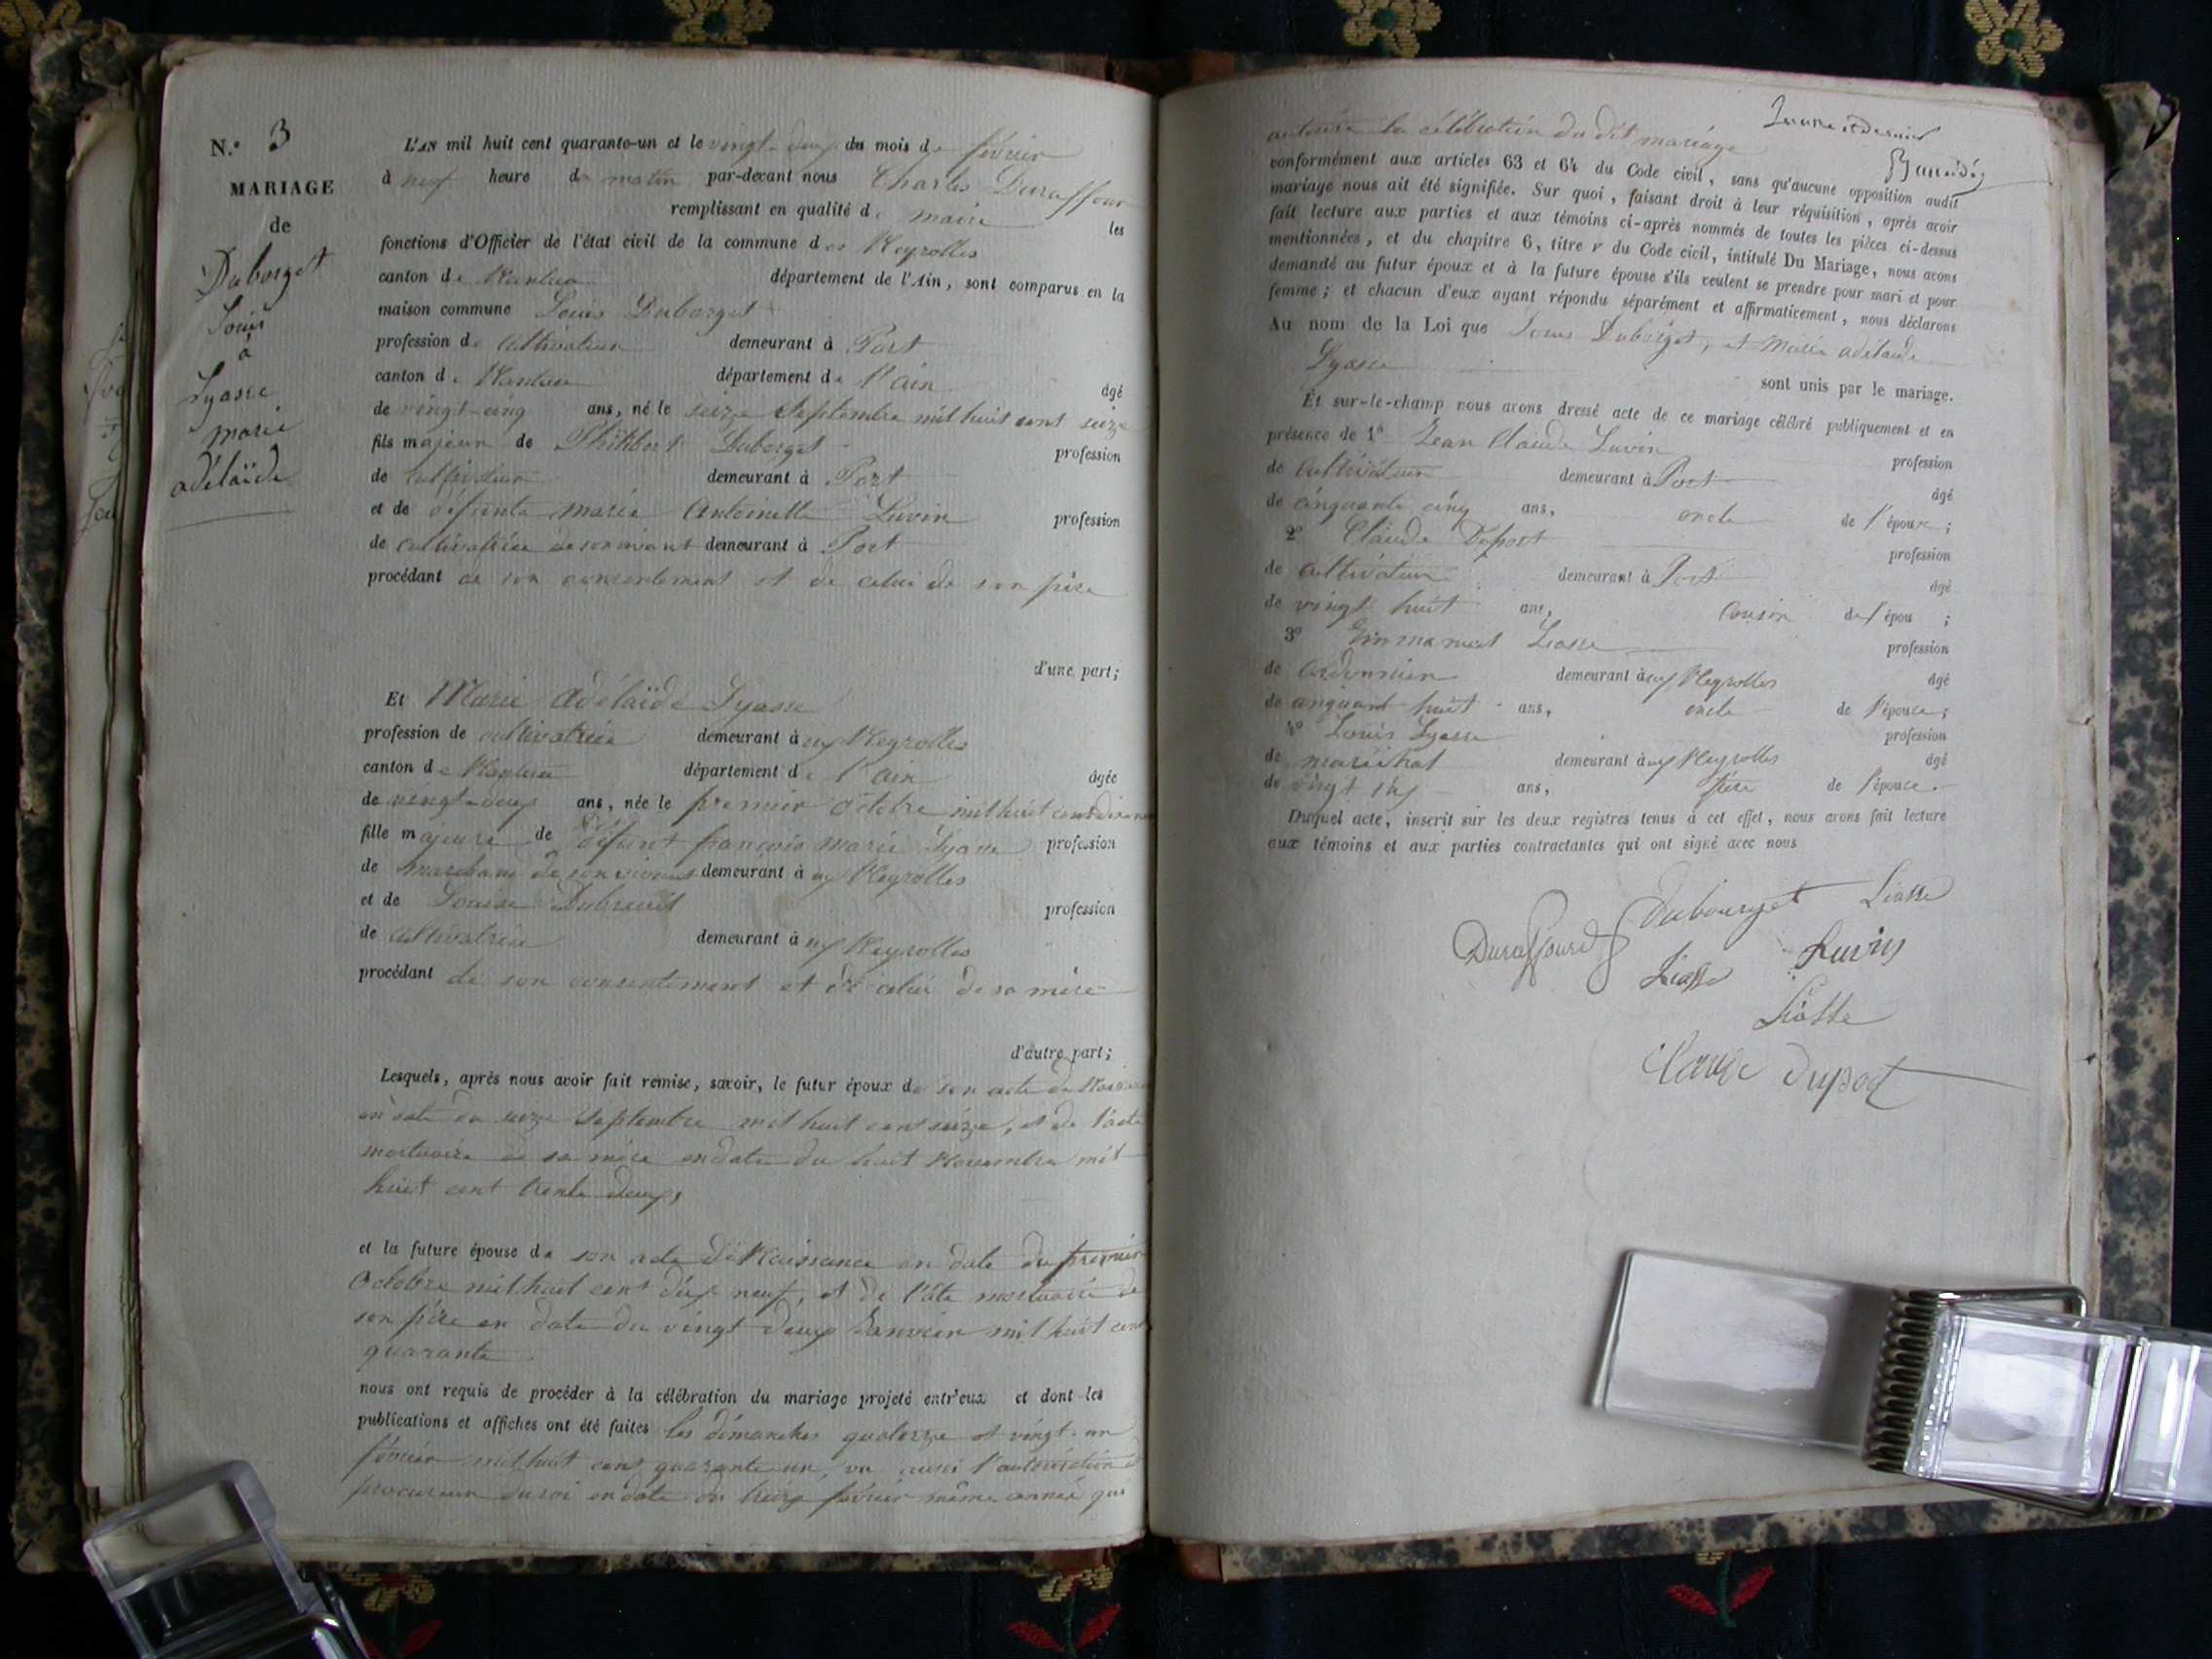 N.º 3
MARIAGE
de
Duborget
Louis
à
Lyasse
marie
adélaïde
L'AN mil huit cent quarante-un et le vingt-deux du mois de février
à neuf heure du matin par-devant nous Charles Duraffour
remplissant en qualité de maire les
fonctions d'Officier de l'état civil de la commune des Neyrolles
canton de Nantua département de l'Ain, sont comparus en la
maison commune Louis Duborget
profession de cultivateur demeurant à Port
canton de Nantua département de l'ain âgé
de vingt-cinq ans, né le seize Septembre mil huit cent seize
fils majeur de Philibert Duborget profession
de cultivateur demeurant à Port
et de défunte marie Antoinette Luvin profession
de cultivatrice de son vivant demeurant à Port
procédant de son consentement et de celui de son père
d'une part;
Et Marie adélaïde Lyasse
profession de cultivatrice demeurant à aux Neyrolles
canton de Nantua département de l'ain âgée
de vingt-deux ans, née le premier octobre mil huit cent dix neuf
fille majeure de défunt françois marie Lyasse profession
de marchand de son vivant demeurant à aux Neyrolles
et de Louise Dubreuil profession
de cultivatrice demeurant à aux Neyrolles
procédant de son consentement et de celui de sa mère
d'autre part;
Lesquels, après nous avoir fait remise, savoir, le futur époux de son acte de Naissance
en date du seize Septembre mil huit cent seize, et de l'acte
mortuaire de sa mère en date du huit Novembre mil
huit cent trente deux,
et la future épouse de son acte de Naissance en date du premier
Octobre mil huit cent dix neuf, et de l'acte mortuaire de
son père en date du vingt deux Janvier mil huit cent
quarante
nous ont requis de procéder à la célébration du mariage projeté entr'eux et dont les
publications et affiches ont été faites les dimanches quatorze et vingt-un
février mil huit cent quarante un, vu aussi l'autorisation du
procureur du roi en date du treize février même année qui
autorise la célébration du dit mariage
conformément aux articles 63 et 64 du Code civil, sans qu'aucune opposition audit
mariage nous ait été signifiée. Sur quoi, faisant droit à leur réquisition, après avoir
fait lecture aux parties et aux témoins ci-après nommés de toutes les pièces ci-dessus
mentionnées, et du chapitre 6, titre v du Code civil, intitulé Du Mariage, nous avons
demandé au futur époux et à la future épouse s'ils veulent se prendre pour mari et pour
femme; et chacun d'eux ayant répondu séparément et affirmativement, nous déclarons
Au nom de la Loi que Louis Duborget, et Marie adélaïde
Lyasse
sont unis par le mariage.
Et sur-le-champ nous avons dressé acte de ce mariage célébré publiquement et en
présence de 1º Jean Claude Luvin profession
de cultivateur demeurant à Port âgé
de cinquante cinq ans, oncle de l'époux;
2º Claude Duport profession
de cultivateur demeurant à Port âgé
de vingt huit ans, cousin de l'épou ;
3º Emmanuel Liasse profession
de cordonnier demeurant à aux Neyrolles âgé
de cinquant huit ans, oncle de l'épouse;
4º Louis Lyasse profession
de maréchal demeurant à aux Neyrolles âgé
de vingt six ans, frère de l'épouse.
Duquel acte, inscrit sur les deux registres tenus à cet effet, nous avons fait lecture
aux témoins et aux parties contractantes qui ont signé avec nous
Dubourget Liasse
Duraffourd Liasse Luvin
Liasse
Claude Duport